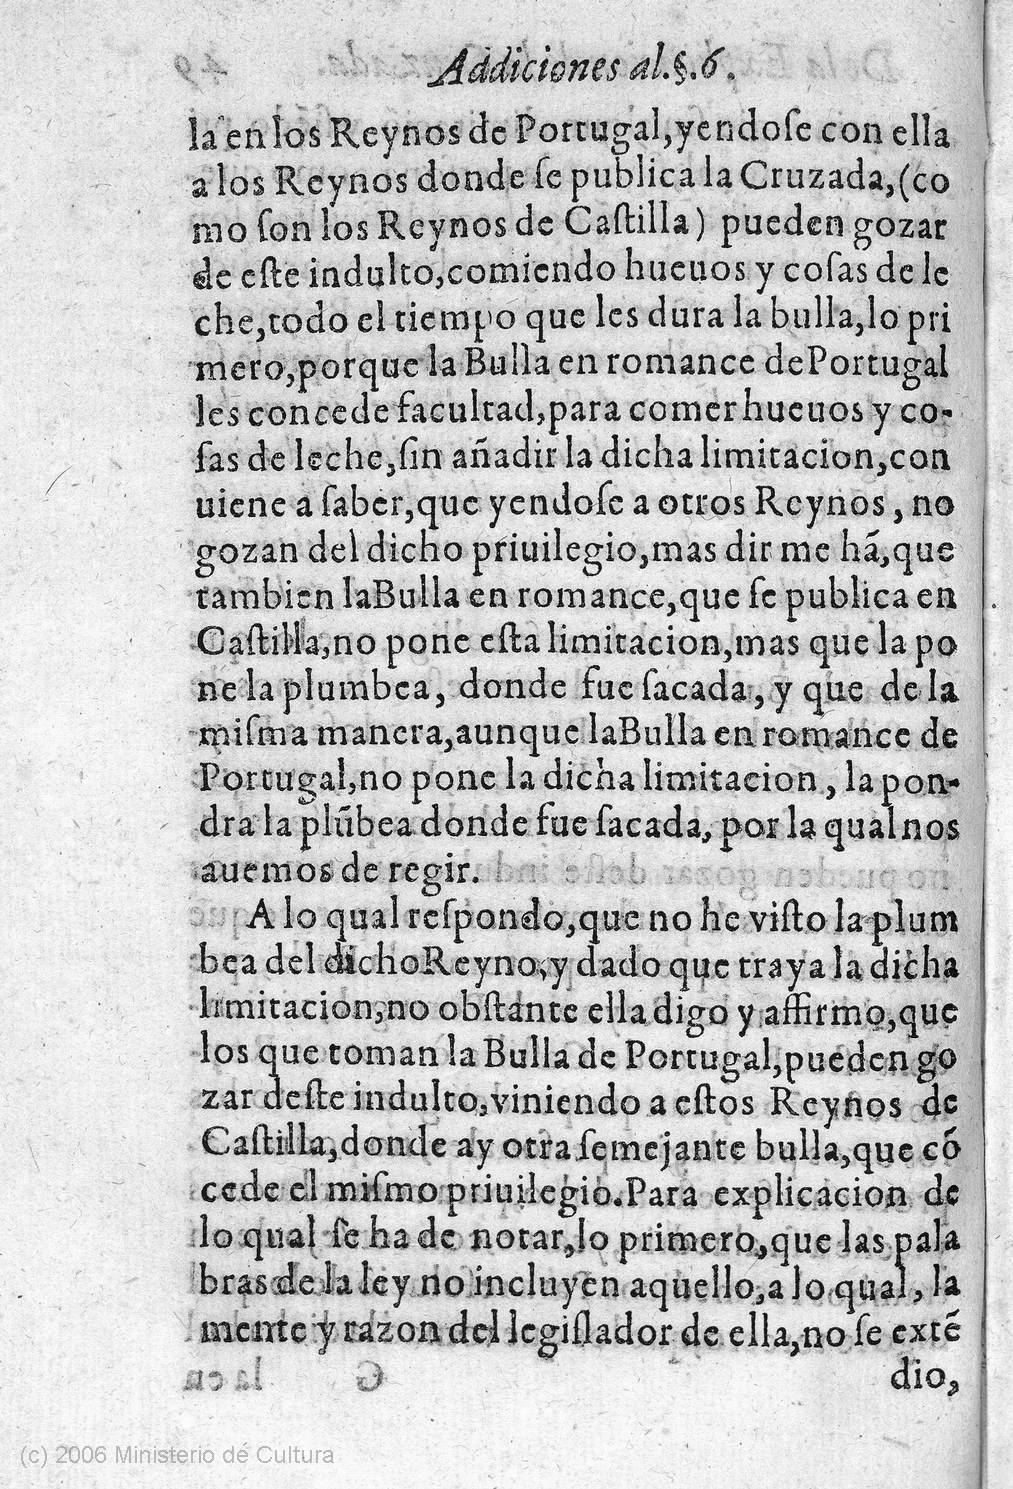 Addiciones al.§.6.
la en los Reynos de Portugal,yendoſe con ella
a los Reynos donde ſe publica la Cruzada,(co
mo ſon los Reynos de Caſtilla) pueden gozar
de eſte indulto,comiendo hueuos y coſas de le
che,todo el tiempo que les dura la bulla,lo pri
mero,porque la Bulla en romance de Portugal
les concede facultad,para comer hueuos y co-
ſas de leche,ſin añadir la dicha limitacion,con
uiene a ſaber,que yendoſe a otros Reynos, no
gozan del dicho priuilegio,mas dir me há,que
tambien la Bulla en romance,que ſe publica en
Caſtilla,no pone eſta limitacion,mas que la po
ne la plumbea, donde fue ſacada, y que de la
miſma manera,aunque la Bulla en romance de
Portugal,no pone la dicha limitacion, la pon-
dra la plũbea donde fue ſacada, por la qual nos
auemos de regir.
A lo qual reſpondo,que no he viſto la plum
bea del dicho Reyno,y dado que traya la dicha
limitacion,no obſtante ella digo y affirmo,que
los que toman la Bulla de Portugal,pueden go
zar deſte indulto,viniendo a eſtos Reynos de
Caſtilla,donde ay otra ſemejante bulla,que cõ
cede el miſmo priuilegio.Para explicacion de
lo qual ſe ha de notar,lo primero,que las pala
bras de la ley no incluyen aquello,a lo qual, la
mente y razon del legiſlador de ella,no ſe extẽ
dio,
(c) 2006 Ministerio de Cultura